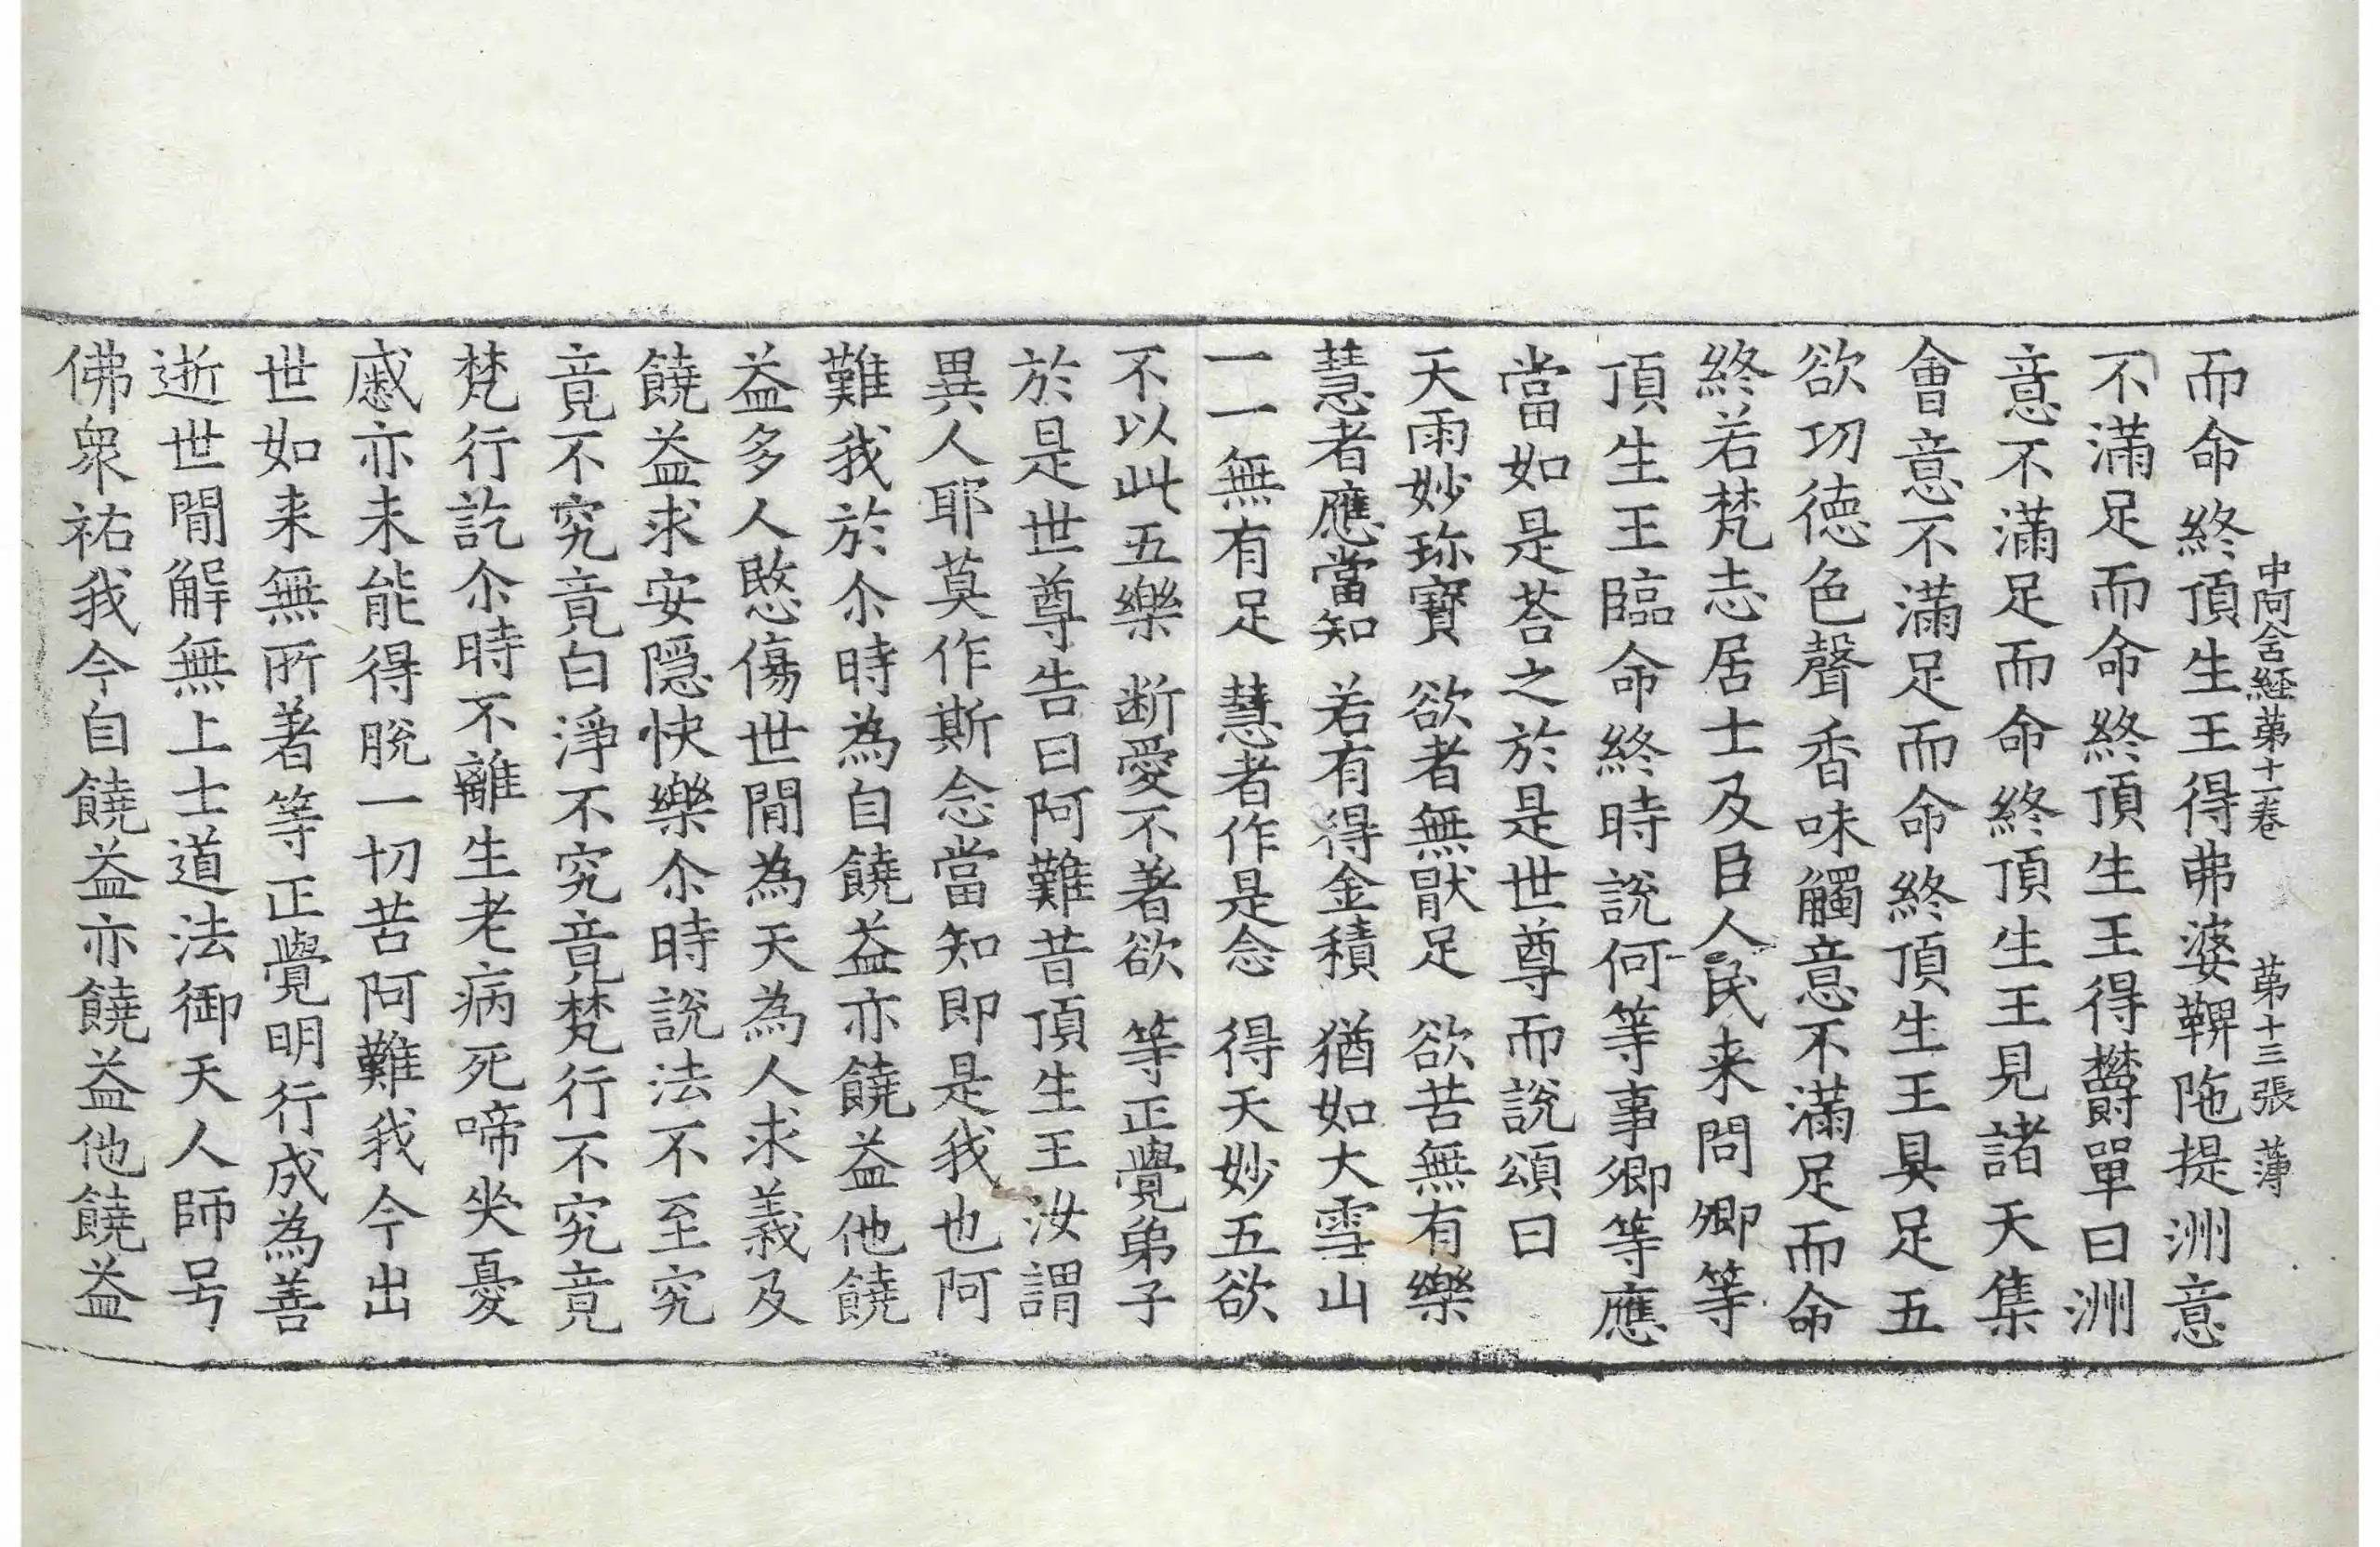 中阿含経第十一卷　第十三張　薄
而命終頂生王得弗婆鞞陁提洲意
不滿足而命終頂生王得欝單曰洲
意不滿足而命終頂生王見諸天集
會意不滿足而命終頂生王具足五
欲功德色聲香味觸意不滿足而命
終若梵志居士及臣人民来問卿等
頂生王臨命終時說何等事卿等應
當如是荅之於是世尊而說頌曰
天雨妙珎寶　欲者無猒足　欲苦無有樂
慧者應當知　若有得金積　猶如大雪山
一一無有足　慧者作是念　得天妙五欲
不以此五樂　断愛不著欲　等正覺弟子
於是世尊告曰阿難昔頂生王汝謂
異人耶莫作斯念當知即是我也阿
難我於尒時為自饒益亦饒益他饒
益多人愍傷世間為天為人求義及
饒益求安隱快樂尒時說法不至究
竟不究竟白淨不究竟梵行不究竟
梵行訖尒時不離生老病死啼哭憂
慼亦未能得脫一切苦阿難我今出
世如来無所著等正覺明行成為善
逝世間解無上士道法御天人師号
佛衆祐我今自饒益亦饒益他饒益